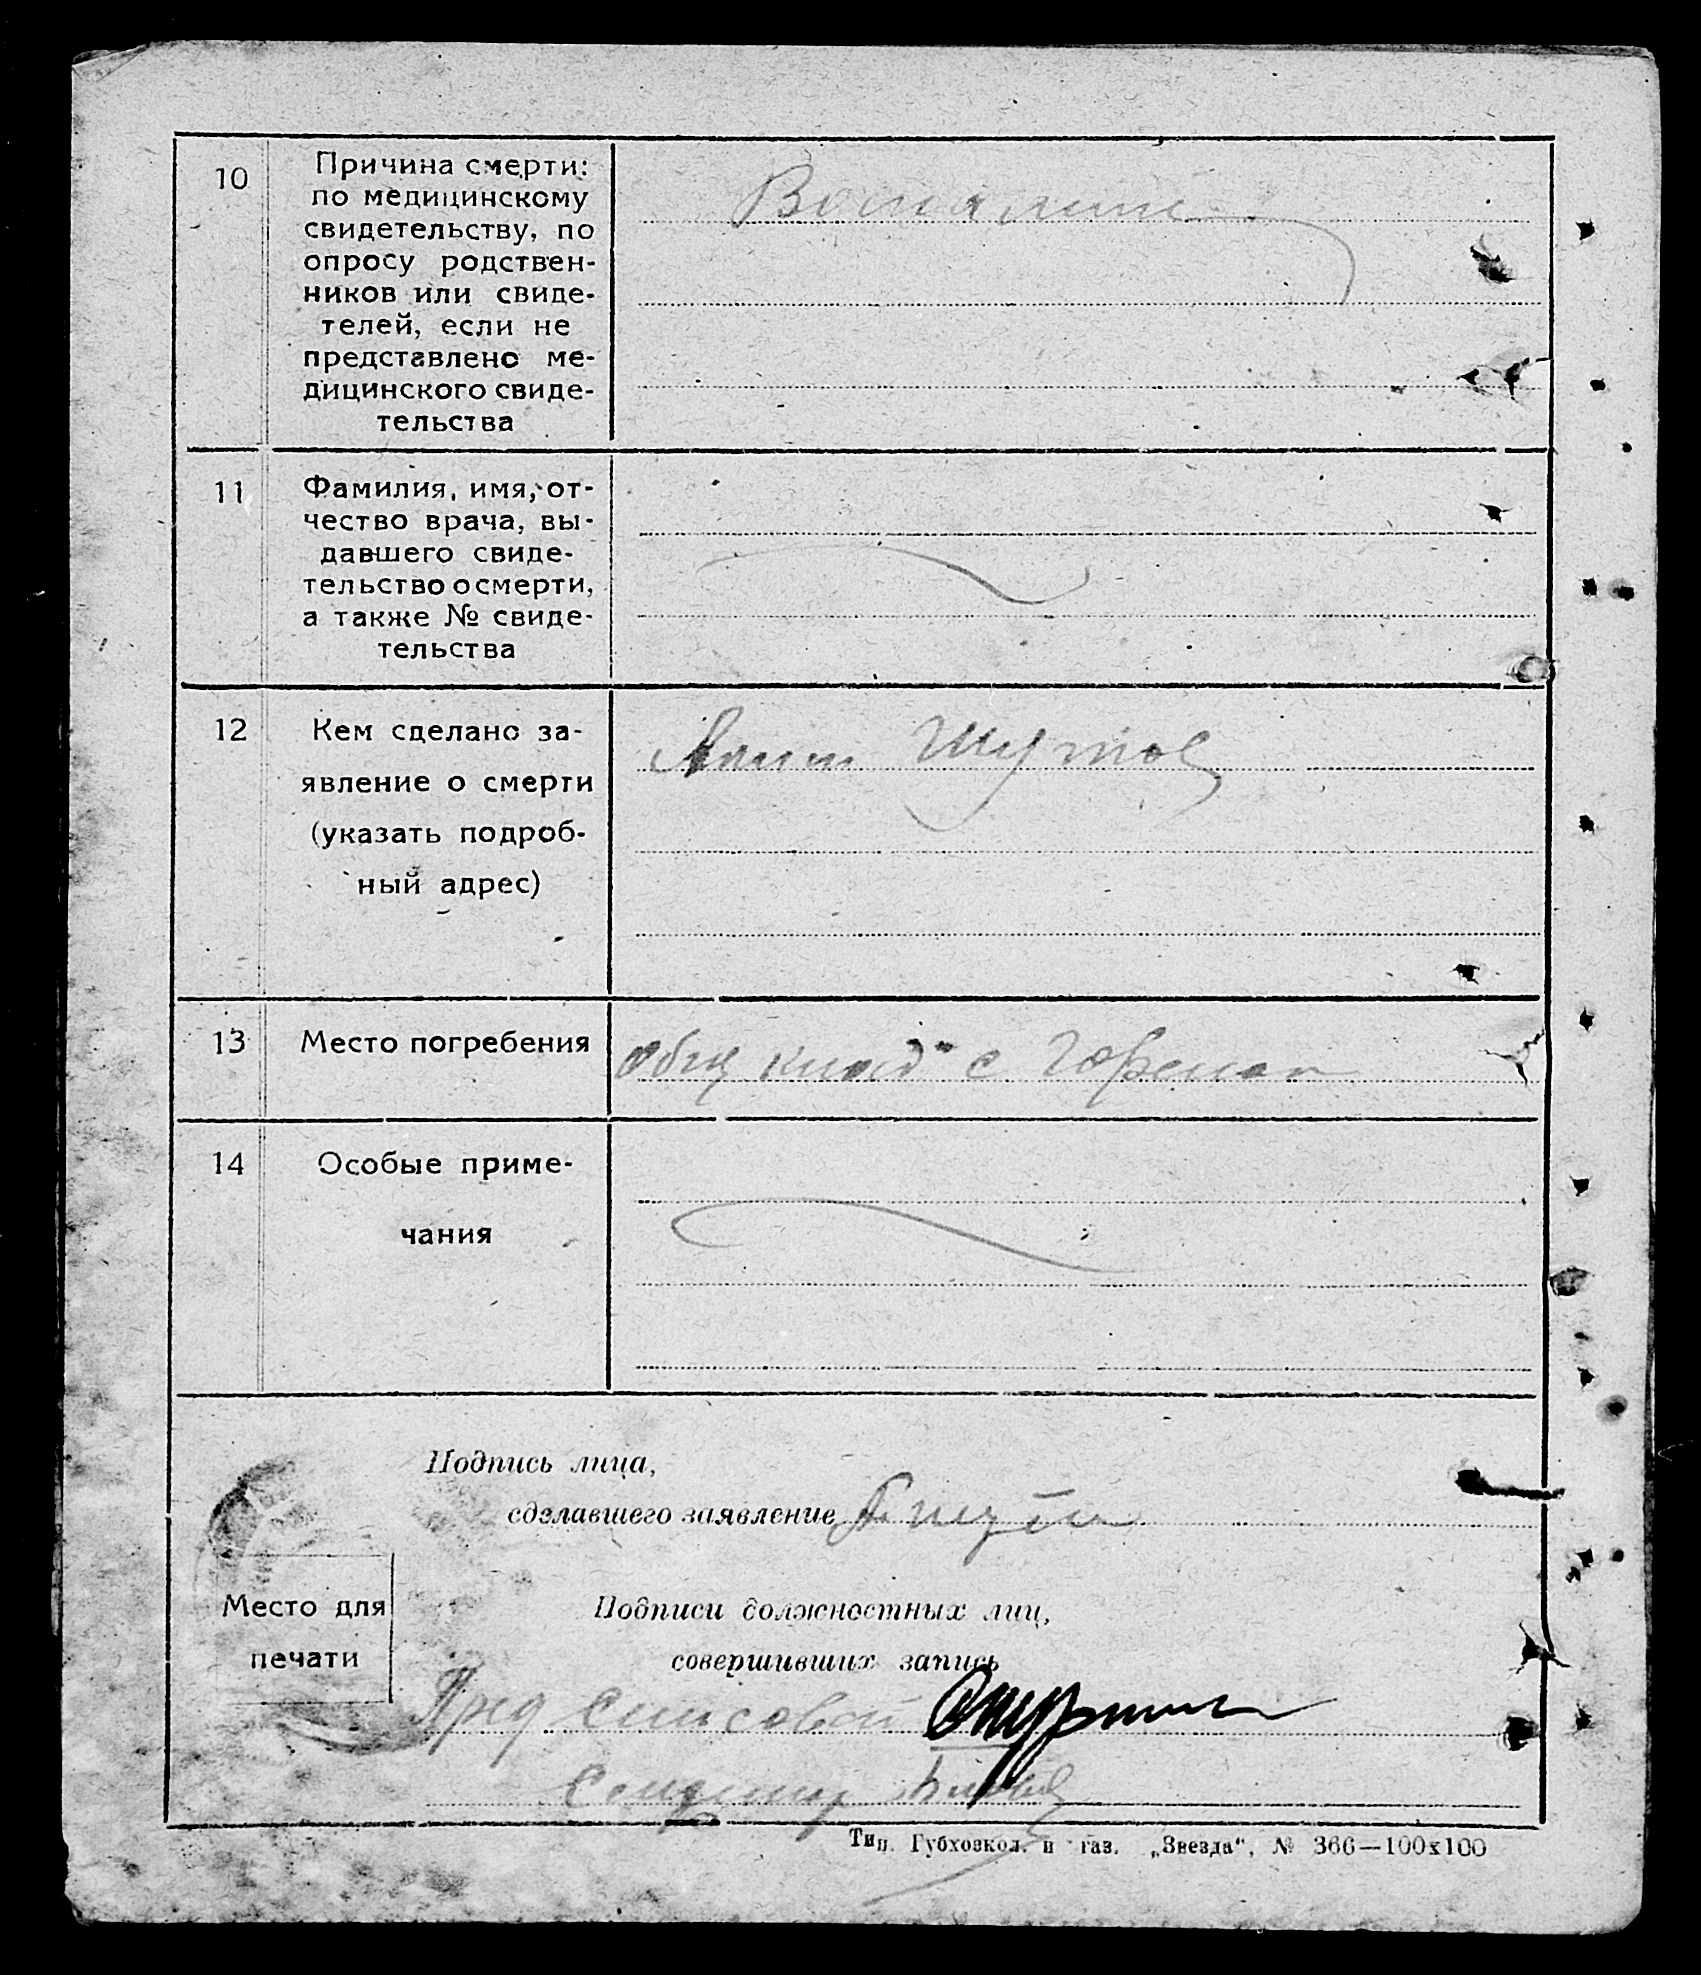 10
Причина смерти:
по медицинскому
свидетельству, по
опросу родствен-
ников или свиде-
телей, если не
представлено ме-
дицинского свиде-
тельства
11
Фамилия, имя, от-
чество врача, вы-
давшего свиде-
тельство о смерти,
а также № свиде-
тельства
12
Кем сделано за-
явление о смерти
(указать подроб-
ный адрес)
Шутов
13
Место погребения
общ клад с
14
Особые приме-
чания
Подпись лица,
сделавшего заявление
Место для
печати
Подписи должностных лиц,
совершивших запись
Пред
Тип. Губхозкол. и газ. „Звезда“, № 366—100x100